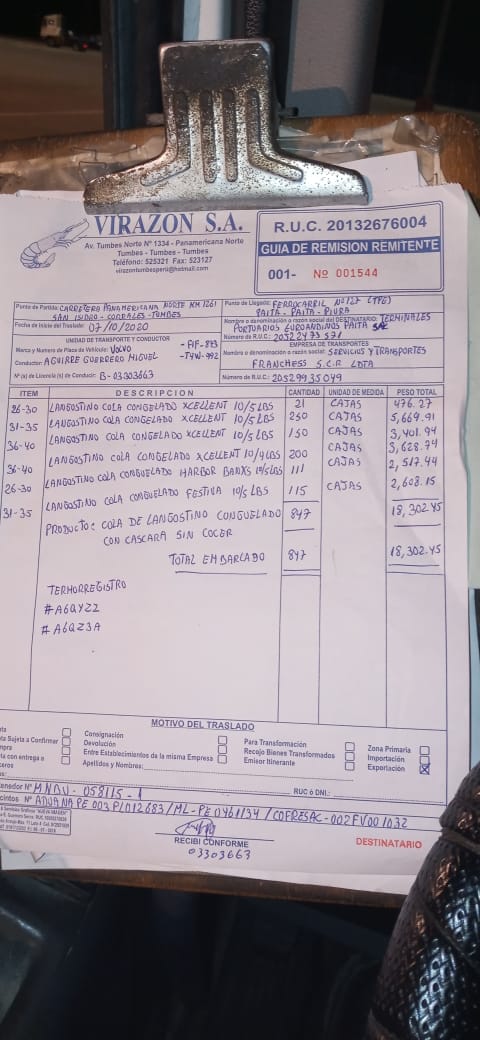 VIRAZON S.A.
Av. Tumbes Norte Nº 1334 - Panamericana Norte
Tumbes - Tumbes - Tumbes
Teléfono: 525321 Fax: 523127
virazontumbesperu@hotmail.com
R.U.C. 20132676004
GUIA DE REMISION REMITENTE
001- Nº 001544
Punto de Partida: CARRETERA PANAMERICANA NORTE KM 1261
SAN ISIDRO - CORRALES - TUMBES
Fecha de Inicio del Traslado: 07/10/2020
Punto de Llegada: FERROCARRIL Nº127 (TPE)
PAITA - PAITA - PIURA
Nombre o denominación o razón social del DESTINATARIO: TERMINALES
PORTUARIOS EUROANDINOS PAITA SAC
Número de R.U.C.: 20522473571
UNIDAD DE TRANSPORTE Y CONDUCTOR
Marca y Numero de Placa de Vehículo: VOLVO - F1F-873
Conductor: AGUIRRE GUERRERO MIGUEL - T4W-992
Nº (s) de Licencia (s) de Conducir: B-03303663
EMPRESA DE TRANSPORTES
Nombre o denominación o razón social: SERVICIOS Y TRANSPORTES
FRANCHESS S.C.R LDTA
Número de R.U.C.: 20529935049
ITEM DESCRIPCION CANTIDAD UNIDAD DE MEDIDA PESO TOTAL
26-30 LANGOSTINO COLA CONGELADO XCELLENT 10/5 LBS 21 CAJAS 476.27
31-35 LANGOSTINO COLA CONGELADO XCELLENT 10/5 LBS 250 CAJAS 5,669.91
36-40 LANGOSTINO COLA CONGELADO XCELLENT 10/5 LBS 150 CAJAS 3,401.94
36-40 LANGOSTINO COLA CONGELADO XCELLENT 10/4 LBS 200 CAJAS 3,628.74
26-30 LANGOSTINO COLA CONGUELADO HARBOR BANKS 10/5 LBS 111 CAJAS 2,517.44
31-35 LANGOSTINO COLA CONGUELADO FESTIVA 10/5 LBS 115 CAJAS 2,608.15
PRODUCTO: COLA DE LANGOSTINO CONGUELADO 847 18,302.45
CON CASCARA SIN COCER
TOTAL EMBARCADO 847 18,302.45
TERMORREGISTRO
#A6QYZ2
#A6QZ3A
MOTIVO DEL TRASLADO
Sujeta a Confirmar
con entrega a
Consignación
Devolución
Entre Establecimientos de la misma Empresa
Apellidos y Nombres:
Para Transformación
Recojo Bienes Transformados
Emisor Itinerante
Zona Primaria
Importación
Exportación
RUC ó DNI.:
Nº MNBU - 058115 - 1
Nº ADUANA PE 003 P1012683 / ML-PE 0461134 / COFRESAC - 002FV001032
RECIBI CONFORME
03303663
DESTINATARIO